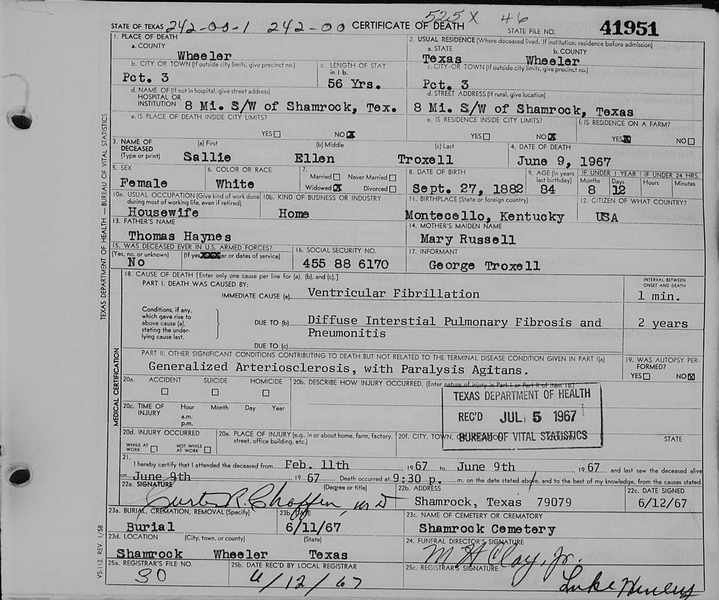 STATE OF TEXAS 242-00-1 242-00 CERTIFICATE OF DEATH 525X 46 STATE FILE NO. 41951
1. PLACE OF DEATH
a. COUNTY
Wheeler
2. USUAL RESIDENCE (Where deceased lived. If institution: residence before admission)
a. STATE b. COUNTY
Texas Wheeler
b. CITY OR TOWN (If outside city limits, give precinct no.) c. LENGTH OF STAY in 1 b.
Pct. 3 56 Yrs.
c. CITY OR TOWN (If outside city limits, give precinct no.)
Pct. 3
d. NAME OF (If not in hospital, give street address) HOSPITAL OR INSTITUTION
8 Mi. S/W of Shamrock, Tex.
d. STREET ADDRESS (If rural, give location)
8 Mi. S/W of Shamrock, Texas
e. IS PLACE OF DEATH INSIDE CITY LIMITS?
YES NO
e. IS RESIDENCE INSIDE CITY LIMITS? f. IS RESIDENCE ON A FARM?
YES NO YES NO
3. NAME OF DECEASED (Type or print) (a) First (b) Middle (c) Last 4. DATE OF DEATH
Sallie Ellen Troxell June 9, 1967
5. SEX 6. COLOR OR RACE 7. Married Never Married Widowed Divorced
Female White
8. DATE OF BIRTH 9. AGE (In years last birthday) IF UNDER 1 YEAR Months Days IF UNDER 24 HRS. Hours Minutes
Sept. 27, 1882 84 8 12
10a. USUAL OCCUPATION (Give kind of work done during most of working life, even if retired) 10b. KIND OF BUSINESS OR INDUSTRY
Housewife Home
11. BIRTHPLACE (State or foreign country) 12. CITIZEN OF WHAT COUNTRY?
Montecello, Kentucky USA
13. FATHER'S NAME 14. MOTHER'S MAIDEN NAME
Thomas Haynes Mary Russell
15. WAS DECEASED EVER IN U.S. ARMED FORCES? (Yes, no, or unknown) (If yes or dates of service)
No
16. SOCIAL SECURITY NO. 17. INFORMANT
455 88 6170 George Troxell
18. CAUSE OF DEATH [Enter only one cause per line for (a), (b), and (c).] INTERVAL BETWEEN ONSET AND DEATH
PART I. DEATH WAS CAUSED BY:
IMMEDIATE CAUSE (a) Ventricular Fibrillation 1 min.
Conditions, if any, which gave rise to above cause (a), stating the underlying cause last.
DUE TO (b) Diffuse Interstial Pulmonary Fibrosis and 2 years
Pneumonitis
DUE TO (c)
PART II. OTHER SIGNIFICANT CONDITIONS CONTRIBUTING TO DEATH BUT NOT RELATED TO THE TERMINAL DISEASE CONDITION GIVEN IN PART I(a) 19. WAS AUTOPSY PERFORMED?
Generalized Arteriosclerosis, with Paralysis Agitans. YES NO
20a. ACCIDENT SUICIDE HOMICIDE 20b. DESCRIBE HOW INJURY OCCURRED. (Enter nature of injury in Part I or Part II of item 18.)
20c. TIME OF INJURY Hour Month Day Year
a.m.
p.m.
TEXAS DEPARTMENT OF HEALTH
REC'D JUL 5 1967
BUREAU OF VITAL STATISTICS
20d. INJURY OCCURRED 20e. PLACE OF INJURY (e.g. in or about home, farm, factory, street, office building, etc.) 20f. CITY, TOWN, STATE
WHILE AT WORK NOT WHILE AT WORK
21. I hereby certify that I attended the deceased from Feb. 11th 1967 to June 9th 1967 and last saw the deceased alive
on June 9th 1967 Death occurred at 9:30 p. m. on the date stated above, and to the best of my knowledge, from the causes stated
22a. SIGNATURE (Degree or title) 22b. ADDRESS 22c. DATE SIGNED
Shamrock, Texas 79079 6/12/67
23a. BURIAL, CREMATION, REMOVAL (Specify) 23b. DATE 23c. NAME OF CEMETERY OR CREMATORY
Burial 6/11/67 Shamrock Cemetery
23d. LOCATION (City, town, or county) (State) 24. FUNERAL DIRECTOR'S SIGNATURE
Shamrock Wheeler Texas M H Clay, Jr.
25a. REGISTRAR'S FILE NO. 25b. DATE REC'D BY LOCAL REGISTRAR 25c. REGISTRAR'S SIGNATURE
30 6/12/67 Luke
TEXAS DEPARTMENT OF HEALTH — BUREAU OF VITAL STATISTICS
MEDICAL CERTIFICATION
VS-112 REV. 1/58